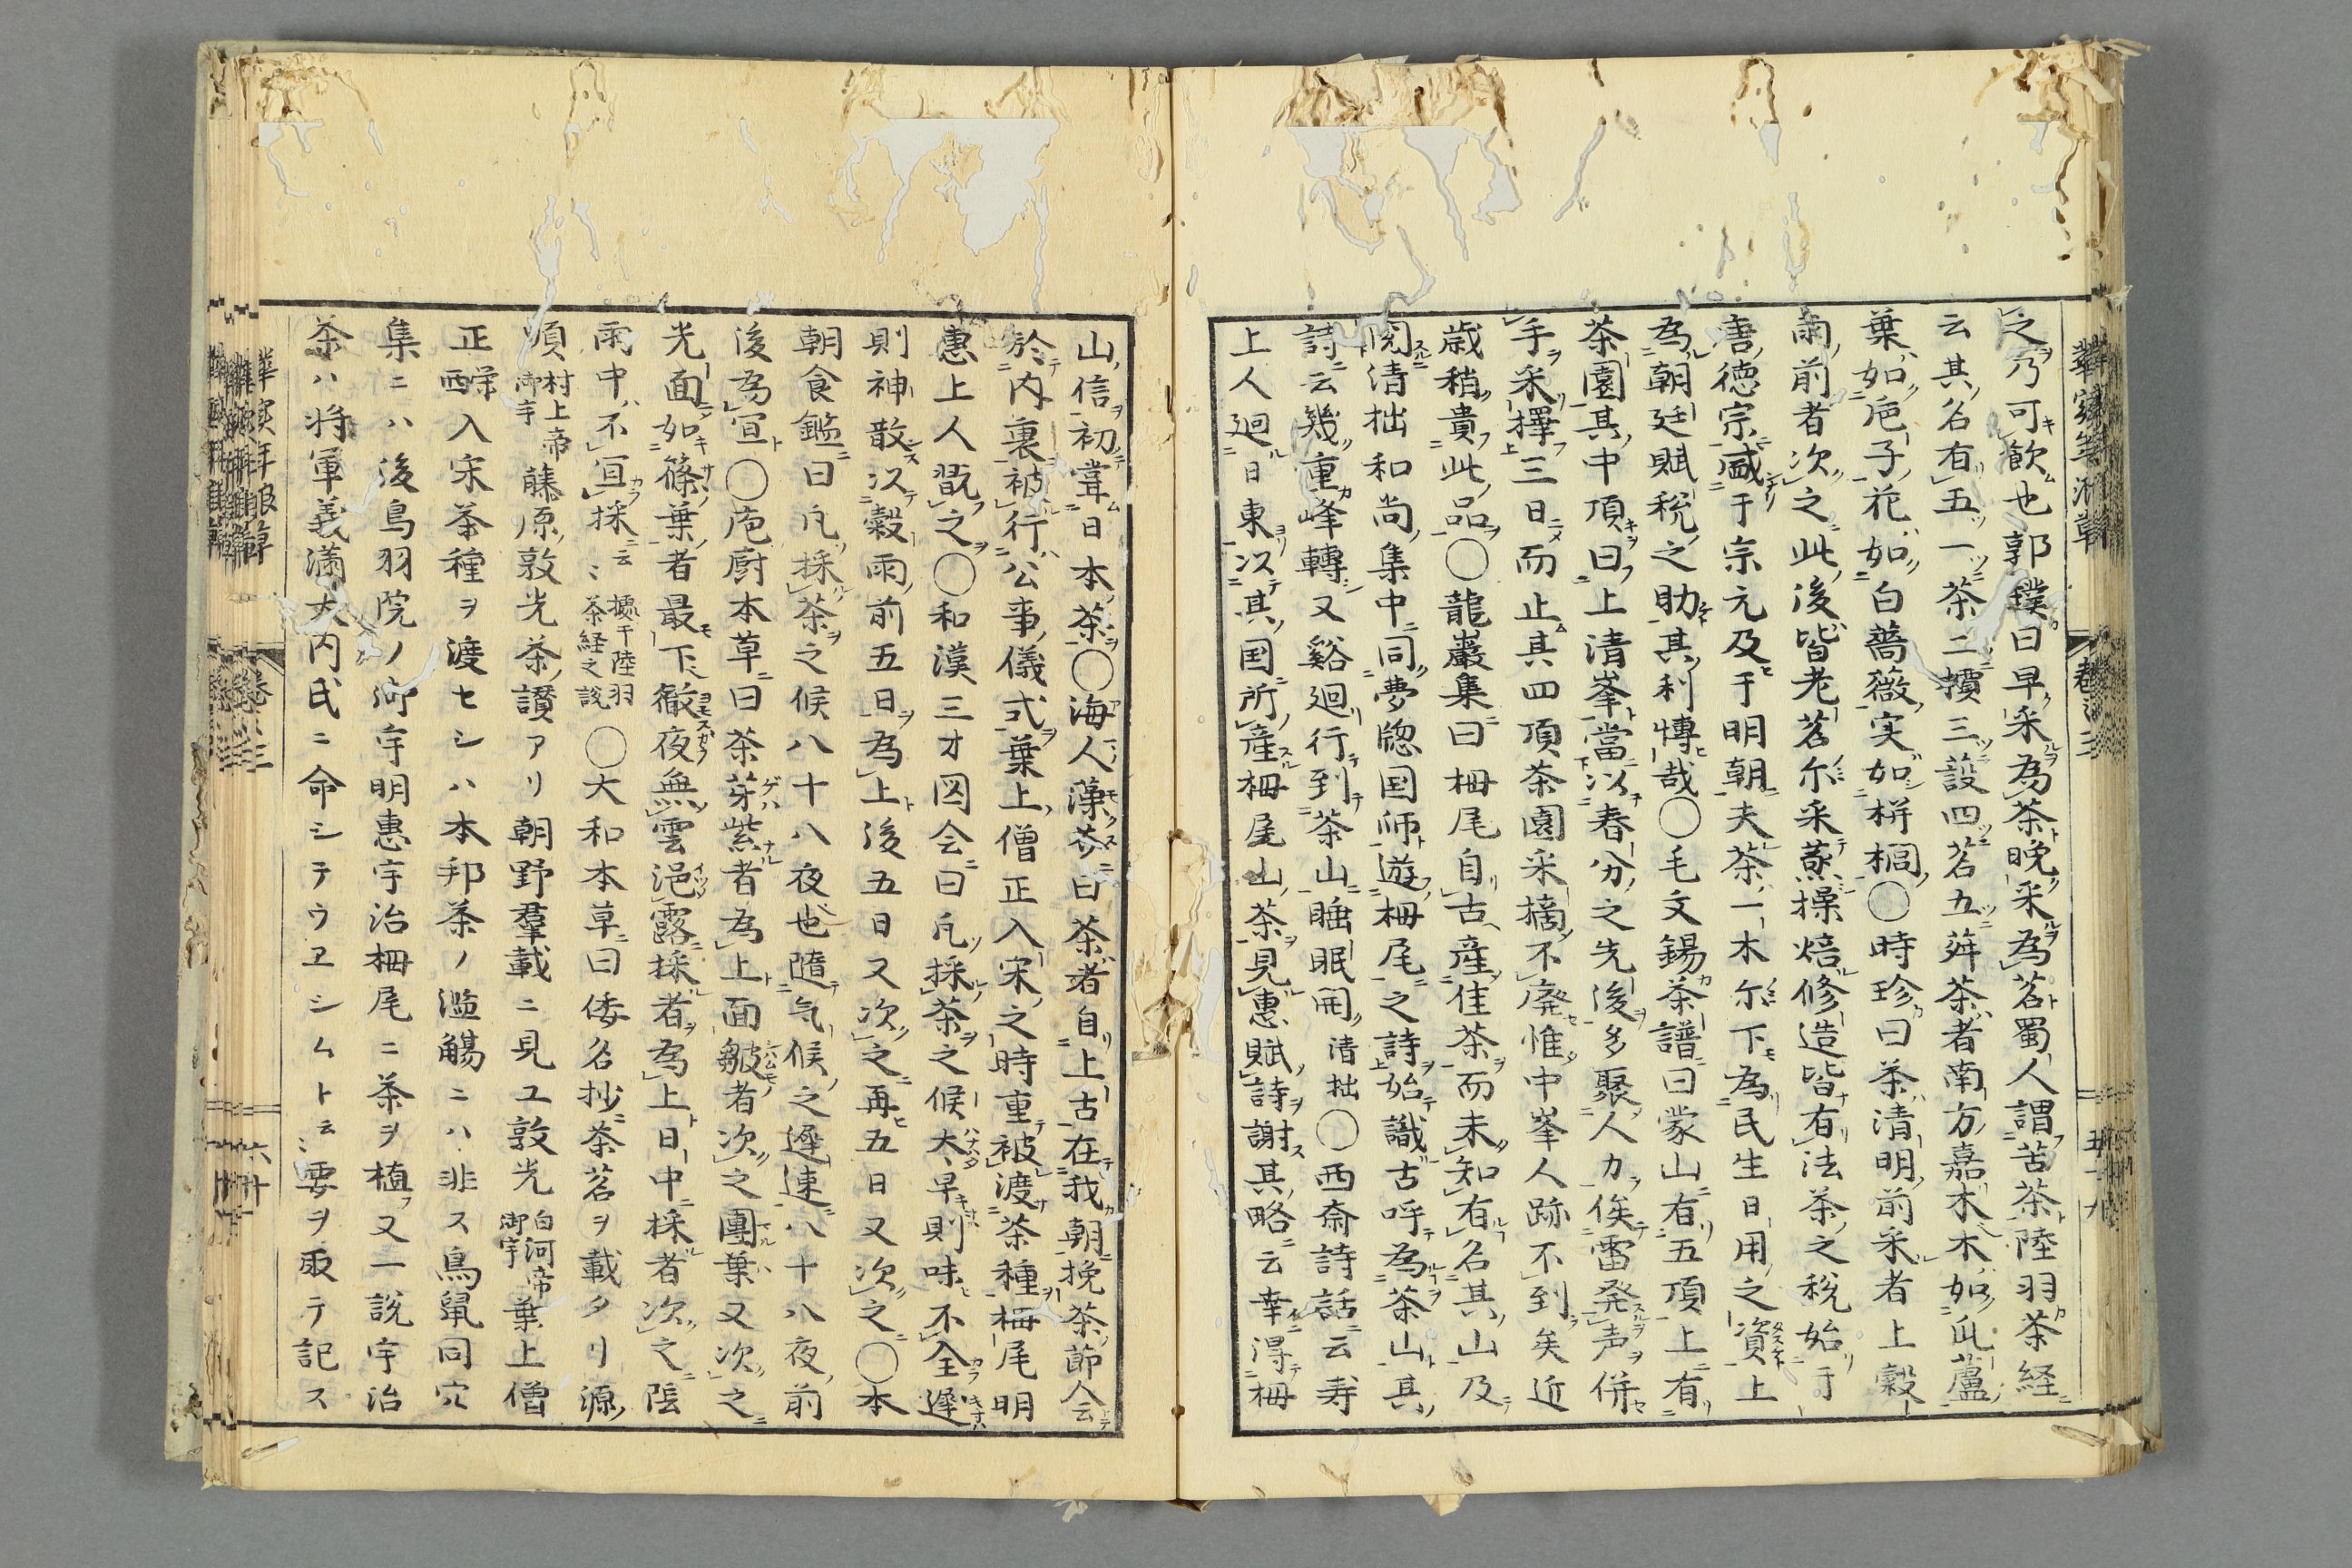 之乃可飲也郭璞曰早采為茶晩采為茗蜀人謂苦茶陸羽茶経
云其名有五一茶二檟三蔎四茗五荈茶者南方嘉木木如瓜蘆
葉如巵子花如白薔薇実如栟櫚〇時珍曰茶清明前采者上穀
雨前者次之此後皆老茗尓采蒸揉焙修造皆有法茶之税始于
唐徳宗盛于宗元及于明朝夫茶一木尓下為民生日用之資上
為朝廷賦税之助其利博哉〇毛文錫茶譜曰蒙山有五頂上有
茶園其中頂曰上清峯當以春分之先後多聚人力俟雷発声併
手采擇三日而止其四頂茶園采摘不廃惟中峯人跡不到矣近
歳稍貴此品〇龍巖集曰栂尾自古産佳茶而未知有名其山及
閲清拙和尚集中同夢窓国師遊栂尾之詩始識古呼為茶山其
詩云幾重峰轉又谿廻行到茶山睡眠開清拙〇西斎詩話云寿
上人廻日東以其国所産栂尾山茶見惠賦詩謝其略云幸得栂
山信初甞日本茶〇海人藻芥曰茶者自上古在我朝挽茶節会
於内裏被行公事儀式葉上僧正入宋之時重被渡茶種栂尾明
惠上人翫之〇和漢三才図会曰凡採茶之候太早則味不全遅
則神散以穀雨前五日為上後五日又次之再五日又次之〇本
朝食鑑曰凡採茶之候八十八夜也隨気候之遅速八十八夜前
後為宜〇庖厨本草曰茶芽紫者為上面皺者次之團葉又次之
光面如篠葉者最下徹夜無雲浥露採者為上日中採者次之陰
雨中不宜採云云據于陸羽茶経之説〇大和本草曰倭名抄茶茗ヲ載タリ源
順村上帝御宇藤原敦光茶讃アリ朝野羣載ニ見ユ敦光白河帝御宇葉上僧
正栄西入宋茶種ヲ渡セシハ本邦茶ノ濫觴ニハ非ス鳥鼠同穴
集ニハ後鳥羽院ノ御宇明惠宇治栂尾ニ茶ヲ植フ又一説宇治
茶ハ将軍義満大内氏ニ命シテウヱシムト云云要ヲ取テ記ス